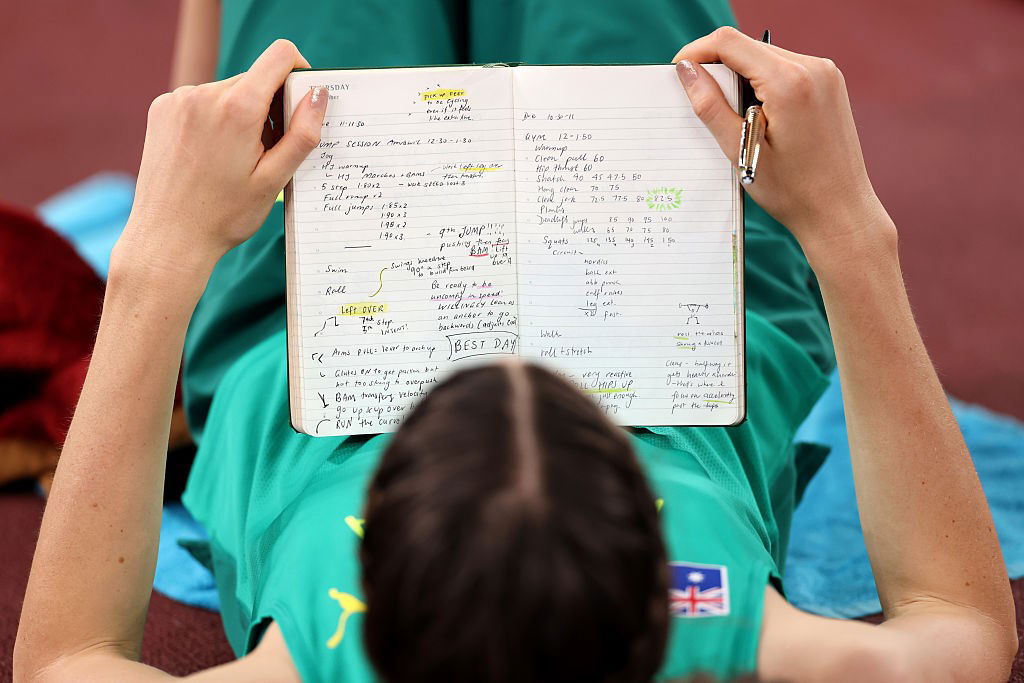 THURSDAY
PICK UP FEET
to be cycling
even if it feels
like extra time
11-11.30
JUMP SESSION 12-30 - 1.30
Jog
HJ warmup
HJ Marches + BAMS
Work left leg over
5 step 1.80x2
Full runup x2
Full jumps 1.85x2
1.90x3
1.95x2
1.90x3
- 9th JUMP !!!!
pushing then
BAM Lift
up to
over it
Swim
Roll
Be ready to be
uncomfy in speed
WILLINGLY
an anchor to go
backwards
Left OVER
7th step
INTENT
BEST DAY
Arms PULL = lever to arch up
Glutes ON to get power but
not too strong to overpush
BAM transfers velocity
go up & up over
RUN the curve
10.30-11
GYM 12-1.50
Warmup
Clean pull 60
Hip thrust 60
Snatch 40 45 47.5 50
Hang clean 70 75
Clean jerk 72.5 77.5 80 82.5
Planks
Deadlift jumps 85 90 95 100
65 70 75 80
Squats 125 135 140 145 150
Circuit -
nordics
back ext
abb punch
calf raises
leg ext
fast.
Walk
roll + stretch
Clean - halfway it
gets heavier
- that's where I
focus on accelerating
past the hips
- very reactive
HIPS UP
just enough